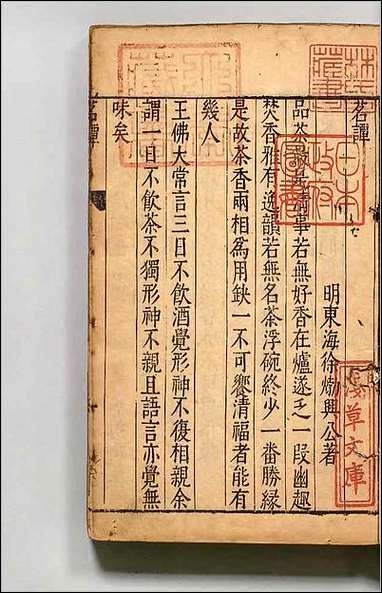 茗譚
明東海徐𤊹興公著
品茶最是清事若無好香在爐遂乏一段幽趣
焚香雅有逸韻若無名茶浮碗終少一番勝緣
是故茶香兩相為用缺一不可饗清福者能有
幾人
王佛大常言三日不飲酒覺形神不復相親余
謂一日不飲茶不獨形神不親且語言亦覺無
味矣
茗譚
林氏藏書
日本政府圖書
淺草文庫